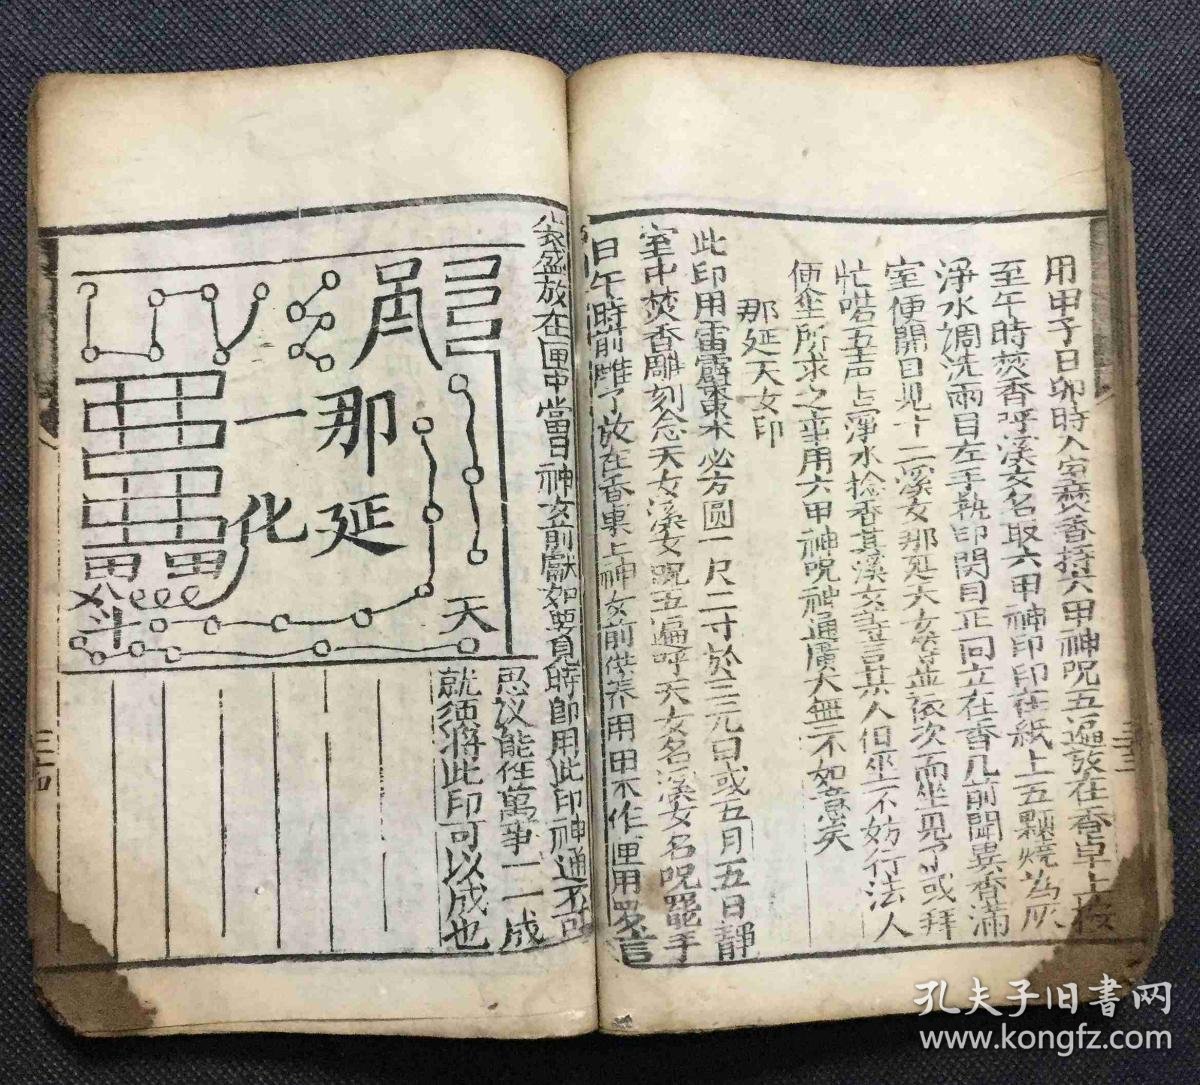 用甲子日卯時入室焚香持六甲神咒五遍放在香卓上按
至午時焚香呼溪女名取六甲神印印在紙上五顆燒為灰
淨水調洗兩目左手執印閉目正向立在香几前聞異香滿
室便開目見十二溪女那延天女等並依次而坐見了或拜
忙喏五声点淨水捻香其溪女等言其人但坐不妨行法人
便坐所求之事用六甲神咒神通廣大無不如意矣
那延天女印
此印用雷霹棗木必方圆一尺二寸於三元日或五月五日靜
室中焚香雕刻念天女溪女咒五遍呼天女名溪女名咒罷手
日午時前雕了放在香卓上神女前供养用甲木作匣用
盛放在匣中當日神女前獻如要見時即用此印神通不可
思议能任萬事一一成
就須将此印可以成也
那延
一化
天
斗
三十三
三十四
孔夫子旧書网
www.kongfz.com